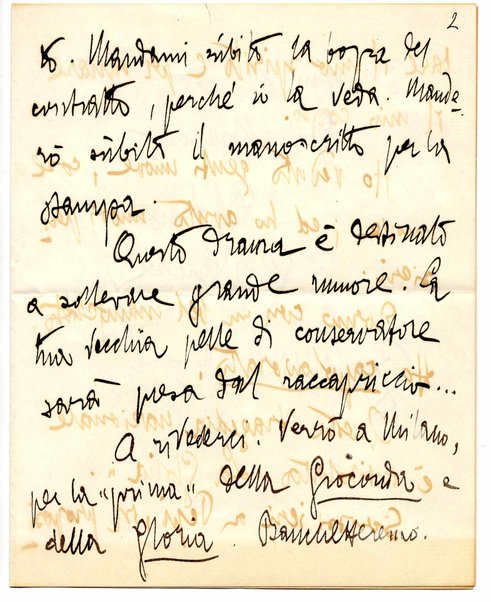 2
to. Mandami sùbito la bozza del
contratto, perché io la veda. Mande-
rò sùbito il manoscritto per la
stampa.
Questo drama è destinato
a sollevare grande rumore. La
tua vecchia pelle di conservatore
sarà presa dal raccapriccio...
A rivederci. Verrò a Milano,
per la "prima" della Gioconda e
della Gloria. Banchetteremo.